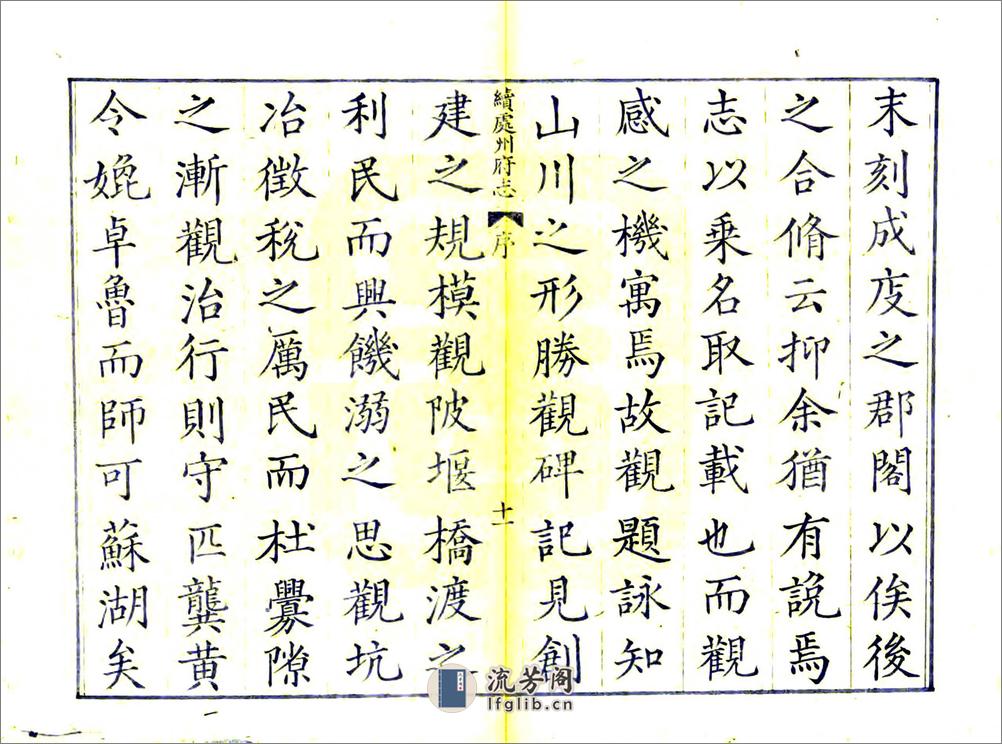 末刻成庋之郡閣以俟後
之合脩云抑余猶有說焉
志以乗名取記載也而觀
感之機寓焉故觀題詠知
山川之形勝觀碑記見創
續處州府志 序 十一
建之規模觀陂堰橋渡之
利民而興饑溺之思觀坑
冶徵稅之厲民而杜釁隙
之漸觀治行則守匹龔黄
令媲卓魯而師可蘇湖矣
流芳阁
lfglib.cn